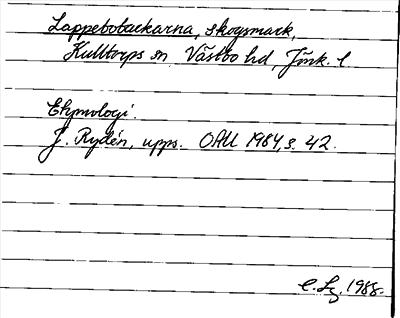 Lappebobackarna, skogsmark,
Kulltorps sn Västbo hd, Jönk. l
Etymologi.
J. Rydén, upps. OAU 1984, s. 42.
1988.